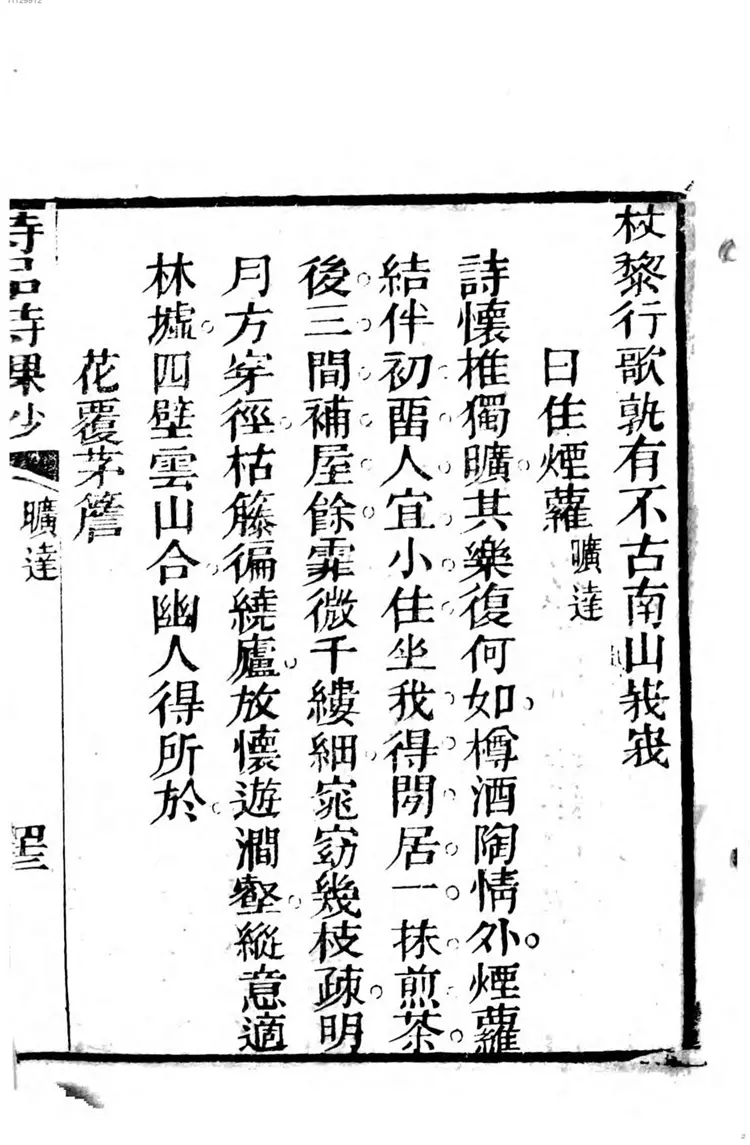 杖黎行歌孰有不古南山峩峩
日住煙蘿曠達
詩懷惟獨曠其樂復何如樽酒陶情外煙蘿
結伴初畱人宜小住坐我得閒居一抹煎茶
後三間補屋餘霏微千縷細窕窈幾枝疎明
月方穿徑枯籐徧繞廬放懷遊澗壑縱意適
林墟四壁雲山合幽人得所於
花覆茅簷
詩品詩課少
曠達
四三
11129912